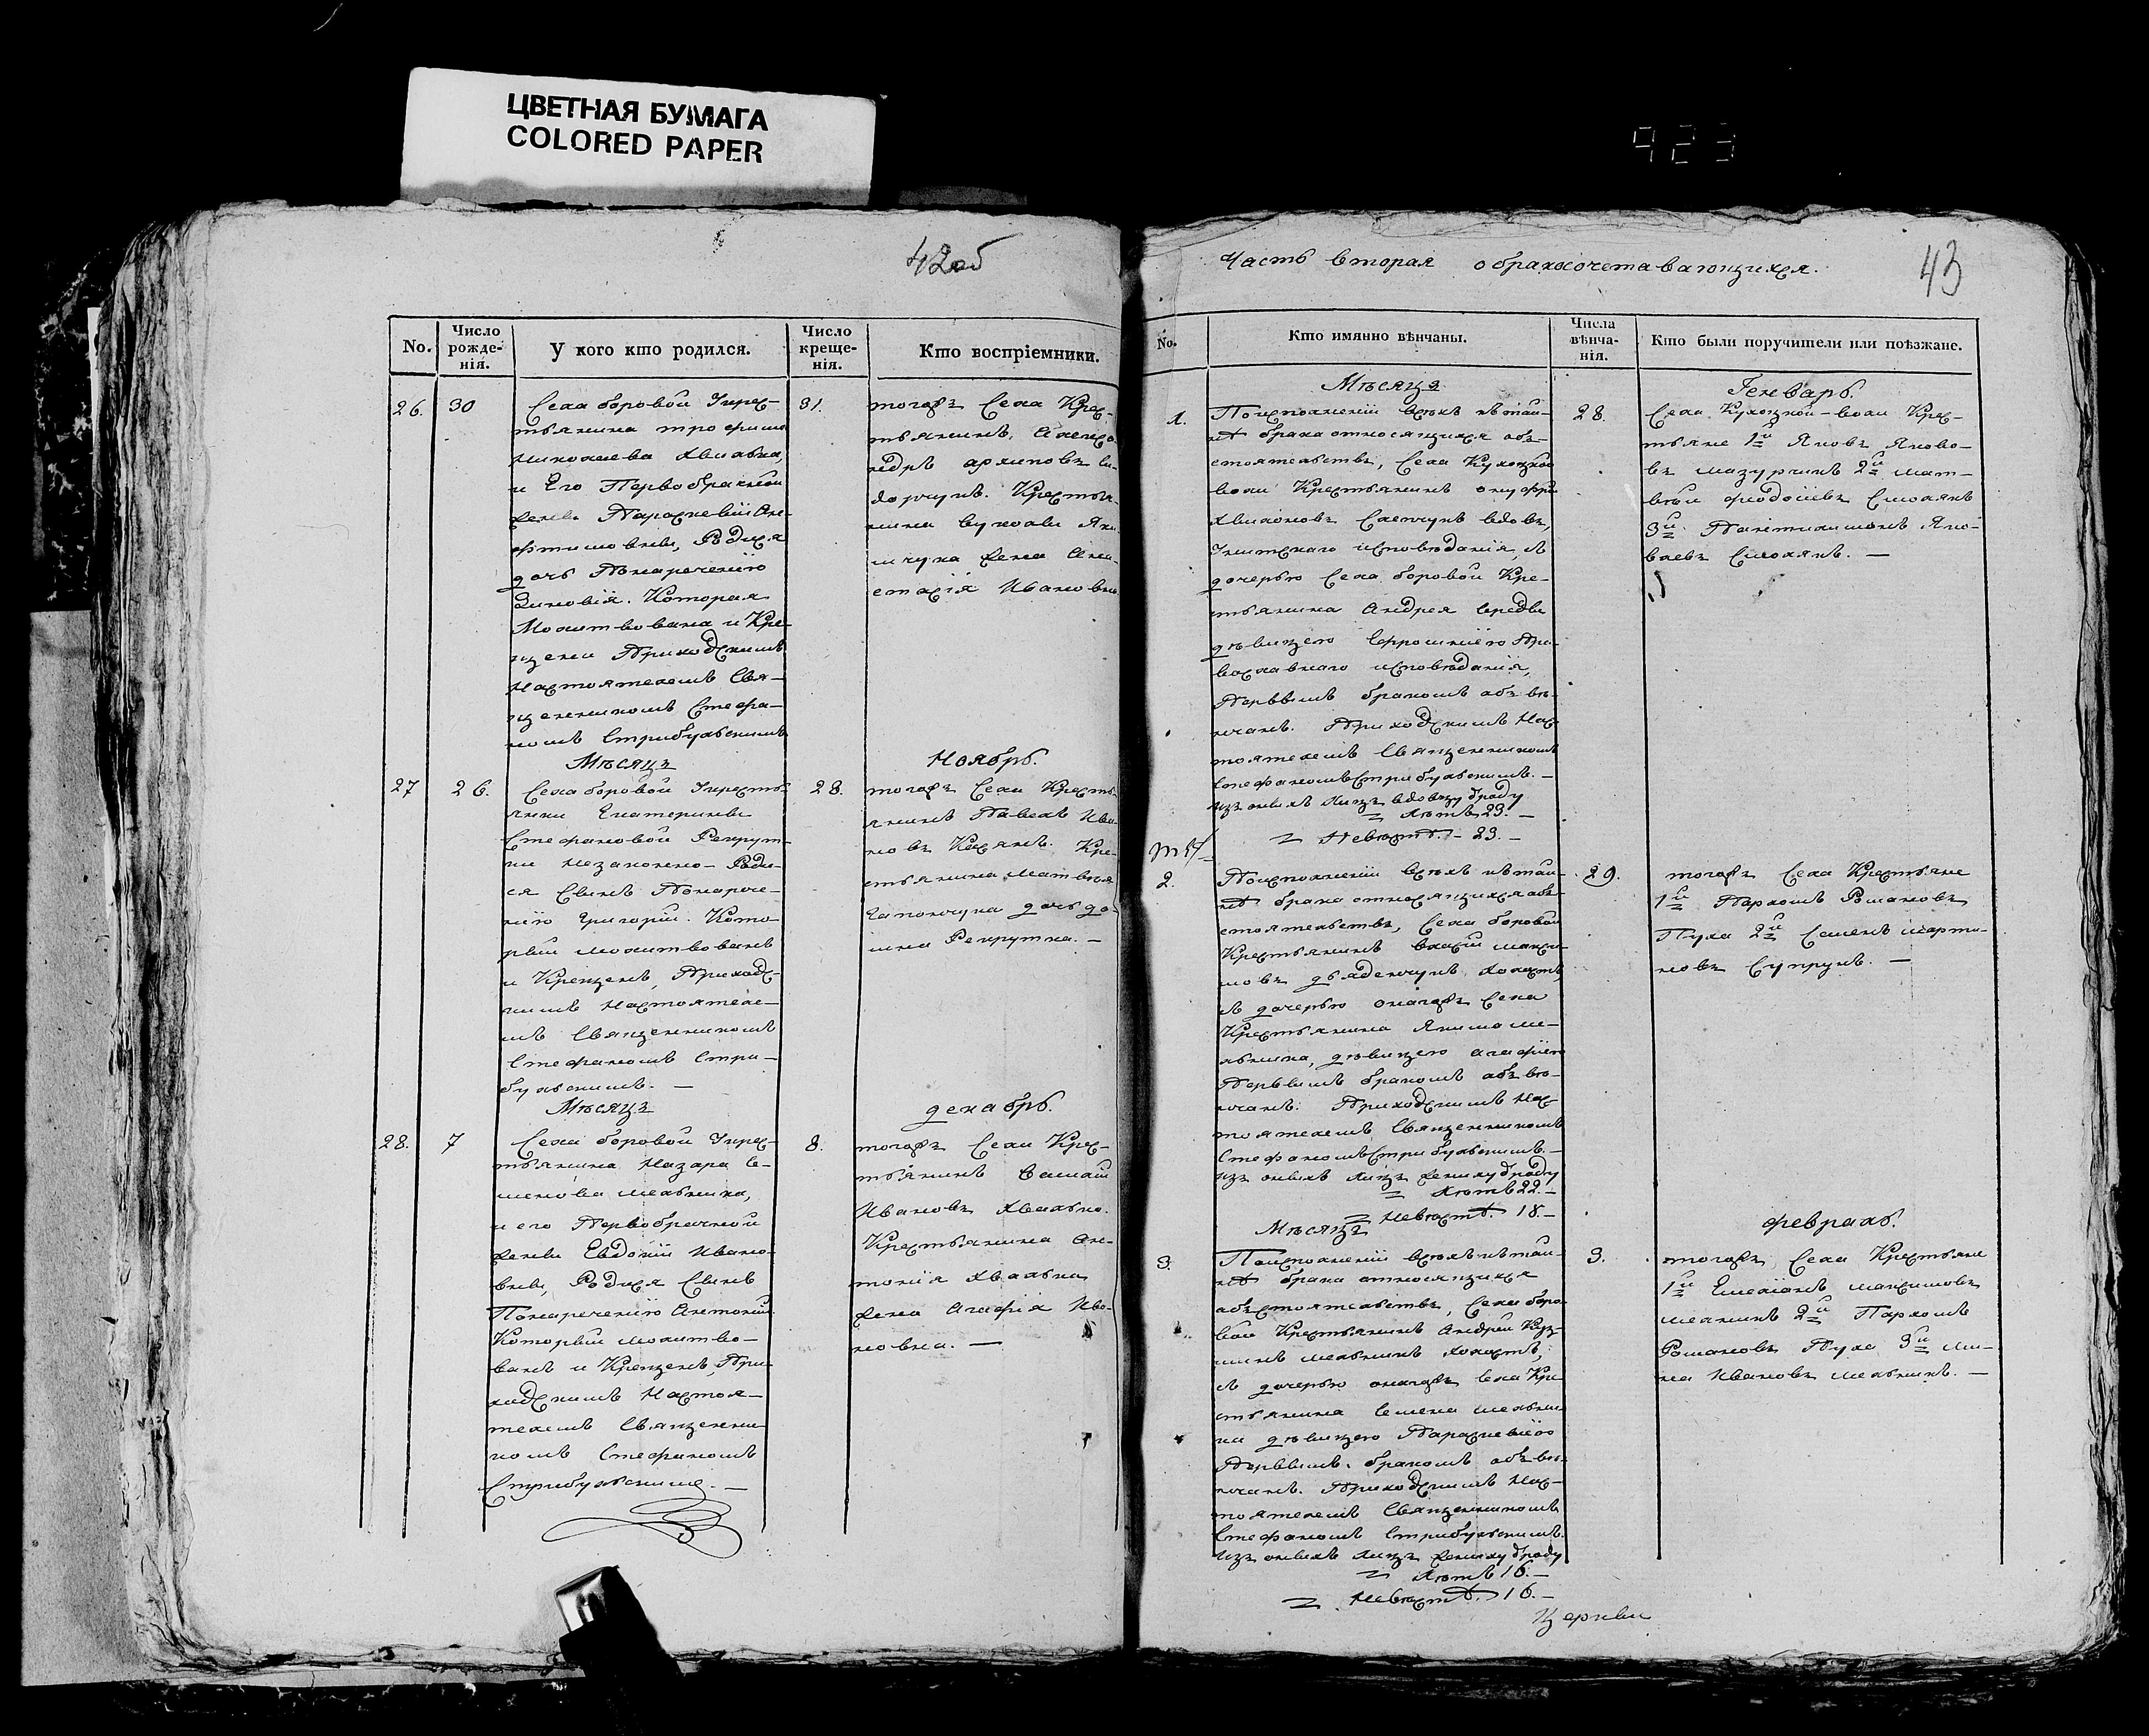 ЦВЕТНАЯ БУМАГА
COLORED PAPER
423
42об
No.
Число рожде-нія.
У кого кто родился.
Число креще-нія.
Кто воспріемники.
26.
30
Села боровой Укрес-
тьянина трофима
Николаева
и Его Первобрачной
жены Параскевіи
Родися
дочь Понареченію
Зиновія. Которая
Молитвована и Кре-
щена Приходскимъ
Настоятелемъ Свя-
щенникомъ Стефа-
номъ Стрибульскимъ
31.
тогожъ Села Крес-
тьянинъ,
архиповъ
Крестья-
нина
жена Ана-
стасія Ивановна
Мѣсяцъ
Ноябрь.
27
26.
Села боровой Укресть
янки Екатерины
Стефановой Рекрут-
ки Незаконно- Роди-
ся Сынъ Понарече-
нію Григорій. Кото-
рый молитвованъ
и Крещенъ, Приход-
скимъ Настояте-
мъ Священникомъ
Стефаномъ Стри-
бульскимъ. —
28.
тогожъ Села Кресть-
янинъ Павелъ Ива-
новъ Касянъ. Кре-
стьянина матвея
дочь до-
мна Рекрутка. —
Мѣсяцъ
декабрь.
28.
7
Села боровой Укрес-
тьянина Назара Се-
менова мельника,
и его Первобрачной
жены Евдокіи Ивано-
вны, Родися Сынъ
Понареченію Антоній
Который молитво-
ванъ и Крещенъ, При-
ходскимъ Настоя-
телемъ Священни-
комъ Стефаномъ
Стрибульскимъ. —
8.
тогожъ Села Крес-
тьянинъ
Ивановъ
Крестьянина Ан-
тонія
жена Агафія Ива-
новна. —
Часть вторая о бракосочетавающихся.
43
No.
Кто имянно вѣнчаны.
Числа вѣнча-нія.
Кто были поручители или поѣзжане.
Мѣсяцъ
Генварь.
1.
Поисполненіи всѣхъ кътай-
нѣ брака относящихся об-
стоятельствъ, Села Кухоцкой
воли Крестьянинъ онуфри
вдовъ,
Унитскаго исповѣданія, съ
дочерью Села боровой Кре-
стьянина Андрея
дѣвицею Ефросиніею Пра-
вославнаго исповѣданія,
Первымъ бракомъ обвѣ-
нчанъ. Приходскимъ Нас-
тоятелемъ Священникомъ
Стефаномъ Стрибульскимъ. —
изъ оныхъ лицъ вдовцу роду
= лѣтъ 29. —
= Невѣстѣ. – 23. —
28.
Села Кухоцкой-воли Крес-
тьяне 1й Яковъ Яково-
въ мазурчикъ 2й мат-
вѣй федосіевъ Смолякъ
3й. Пантилимонъ Яко-
влевъ Смолякъ. —
2.
Поисполненіи всѣхъ кътай-
нѣ брака относящихся об-
стоятельствъ, Села боровой
Крестьянинъ власій макси-
мовъ холостъ,
съ дочерью оногожъ Села
Крестьянина Якима ме-
льника, дѣвицею агафіею
Первымъ бракомъ обвѣ-
нчанъ. Приходскимъ Нас-
тоятелемъ Священникомъ
Стефаномъ Стрибульскимъ. —
изъ оныхъ лицъ жениху роду
= лѣтъ 22. —
= Невѣстѣ. 18. —
29.
тогожъ Села Крестьяне
1й Пархомъ Романовъ
Пуха 2й Семенъ марти-
новъ Супрунъ. —
Мѣсяцъ
февраль.
3.
Поисполненіи всѣхъ кътай-
нѣ брака относящихся
обстоятельствъ, Села боро-
вой Крестьянинъ Андрей Куз-
минъ мельникъ холостъ,
съ дочерью оногожъ села Кре-
стьянина Семена мельни-
ка дѣвицею Параскевіею
Первымъ. бракомъ обвѣ-
нчанъ. Приходскимъ Нас-
тоятелемъ Священникомъ
Стефаномъ Стрибульскимъ.
изъ оныхъ лицъ жениху роду
= лѣтъ 16. —
= Невѣстѣ. 16. —
3.
тогожъ Села Крестьяне
1й Емеліанъ максимовъ
2й Пархомъ
Романовъ Пуха 3й ми-
на Ивановъ мельникъ. —
Церкви